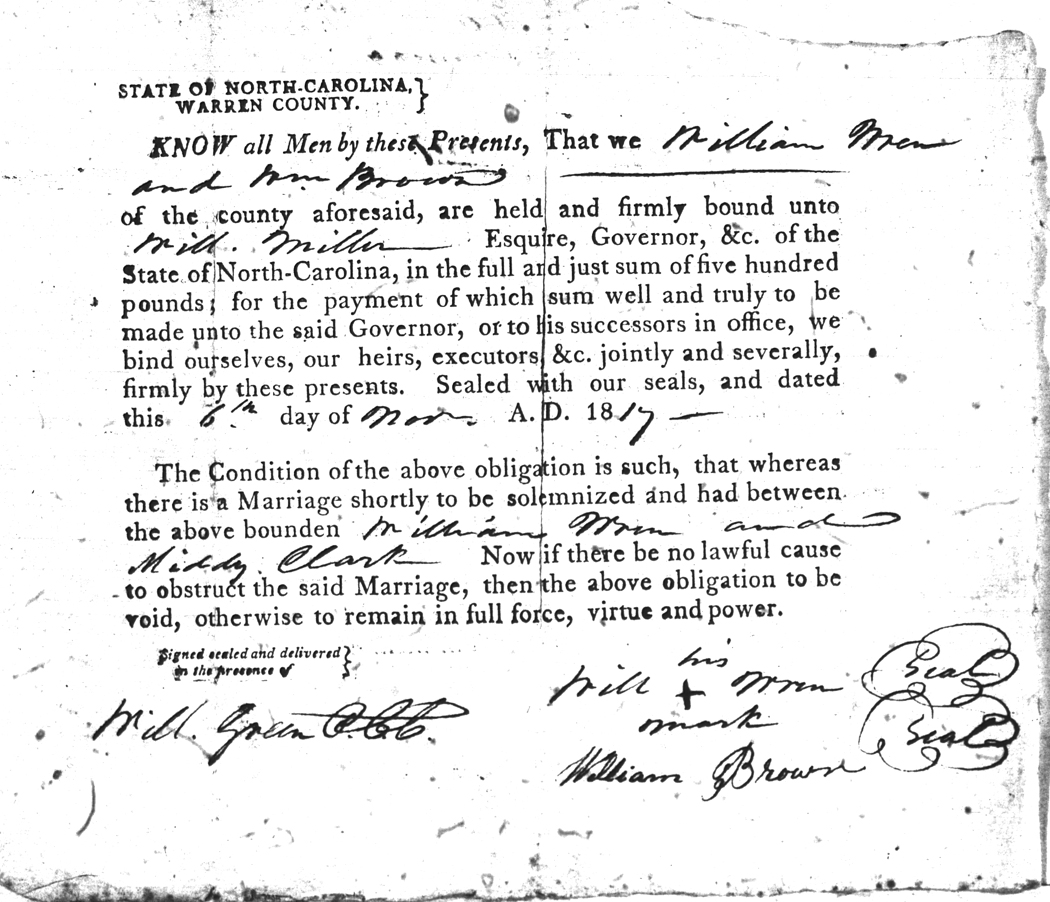 STATE OF NORTH-CAROLINA, }
WARREN COUNTY.
KNOW all Men by these Presents, That we William Wren
and Wm Brown
of the county aforesaid, are held and firmly bound unto
Will. Miller Esquire, Governor, &c. of the
State of North-Carolina, in the full and just sum of five hundred
pounds; for the payment of which sum well and truly to be
made unto the said Governor, or to his successors in office, we
bind ourselves, our heirs, executors, &c. jointly and severally,
firmly by these presents. Sealed with our seals, and dated
this 6th day of Novr. A. D. 1817
The Condition of the above obligation is such, that whereas
there is a Marriage shortly to be solemnized and had between
the above bounden William Wren and
Middy Clark Now if there be no lawful cause
to obstruct the said Marriage, then the above obligation to be
void, otherwise to remain in full force, virtue and power.
Signed sealed and delivered }
in the presence of
his
Will + Wren Seal
mark
Will. Green C.C.C. Seal
William Brown